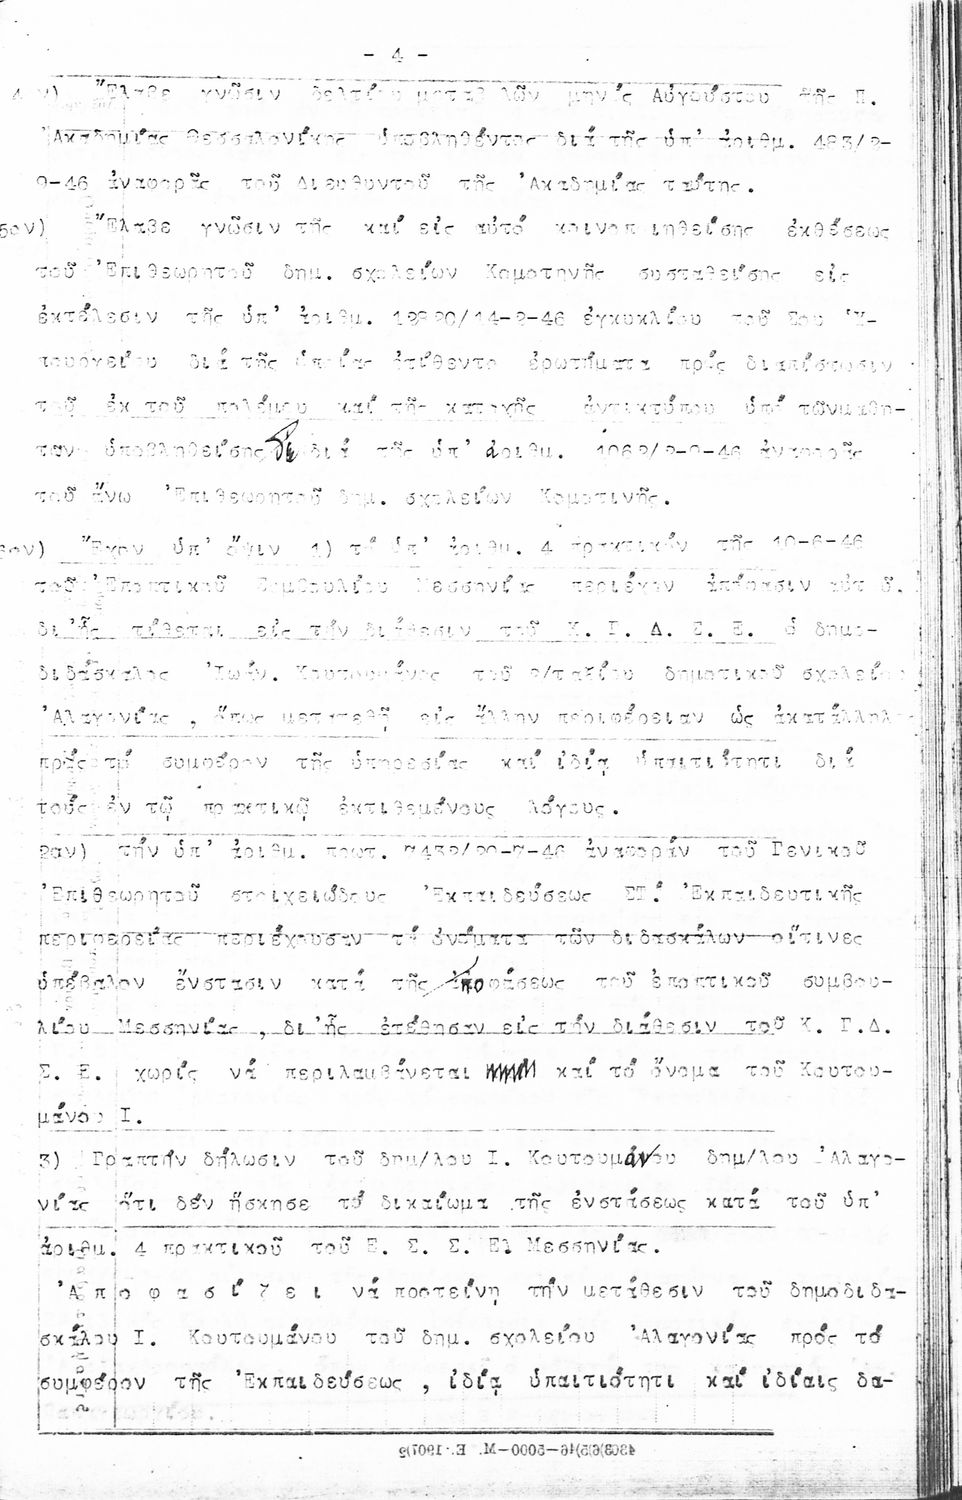 - 4 -
4 ν) Ἔλαβε γνῶσιν δελτίου μεταβολῶν μηνός Αὐγούστου τῆς Π.
Ἀκαδημίας Θεσσαλονίκης ὑποβληθέντος διά τῆς ὑπ' ἀριθμ. 483/2-
9-46 ἀναφορᾶς τοῦ Διευθυντοῦ τῆς Ἀκαδημίας ταύτης.
5ον) Ἔλαβε γνῶσιν τῆς καί εἰς αὐτό κοινοποιηθείσης ἐκθέσεως
τοῦ Ἐπιθεωρητοῦ δημ. σχολείων Κομοτηνῆς συσταθείσης εἰς
ἐκτέλεσιν τῆς ὑπ' ἀριθμ. ἐγκυκλίου τοῦ Σου Ὑ-
πουργείου διά τῆς ὁποίας ἐτίθεντο ἐρωτήματα πρός διαπίστωσιν
τοῦ ἐκ τοῦ πολέμου καί τῆς κατοχῆς ἀντικτύπου ὑπό τῶνμαθη-
των ὑποβληθείσης δέ διά τῆς ὑπ' ἀριθμ. ἀναφορᾶς
τοῦ ἄνω Ἐπιθεωρητοῦ δημ. σχολείων Κομοτινῆς.
6ον) Ἔχον ὑπ' ὄψιν 1) τό ὑπ' ἀριθμ. 4 πρακτικόν τῆς 10-6-46
τοῦ Ἐποπτικοῦ Συμβουλίου Μεσσηνίας περιέχον ἀπόφασιν αὐτοῦ.
δι' ἧς τίθεται εἰς τήν διάθεσιν τοῦ Κ. Γ. Δ. Σ. Ε. ὁ δημο-
διδάσκαλος Ἰωάν. Κουτουμάνος τοῦ 2/ταξίου δημοτικοῦ σχολείου
Ἀλαγονίας , ὅπως μετατεθῇ εἰς ἄλλην περιφέρειαν ὡς ἀκατάλληλος
πρός τό συμφέρον τῆς ὑπηρεσίας καί ἰδίᾳ ὑπαιτιότητι διά
τούς ἐν τῷ πρακτικῷ ἐκτιθεμένους λόγους.
2αν) τήν ὑπ' ἀριθμ. πρωτ. 7432/20-7-46 ἀναφοράν τοῦ Γενικοῦ
Ἐπιθεωρητοῦ στοιχειώδους Ἐκπαιδεύσεως ΣΤ΄. Ἐκπαιδευτικῆς
περιφερείας περιέχουσαν τά ὀνόματα τῶν διδασκάλων οἵτινες
ὑπέβαλον ἔνστασιν κατά τῆς ἀποφάσεως τοῦ ἐποπτικοῦ συμβου-
λίου Μεσσηνίας , δι' ἧς ἐτέθησαν εἰς τήν διάθεσιν τοῦ Κ. Γ.Δ.
Σ. Ε. χωρίς νά περιλαμβάνεται καί τό ὄνομα τοῦ Κουτου-
μάνου Ι.
3) Γραπτήν δήλωσιν τοῦ δημ/λου Ι. Κουτουμάνου δημ/λου Ἀλαγο-
νίας ὅτι δέν ἤσκησε τό δικαίωμα τῆς ἐνστάσεως κατά τοῦ ὑπ'
ἀριθμ. 4 πρακτικοῦ τοῦ Ε. Σ. Σ. Ε1 Μεσσηνίας.
Ἀ π ο φ α σ ί ζ ε ι νά προτείνῃ τήν μετάθεσιν τοῦ δημοδιδα-
σκάλου Ι. Κουτουμάνου τοῦ δημ. σχολείου Ἀλαγονίας πρός τό
συμφέρον τῆς Ἐκπαιδεύσεως , ἰδίᾳ ὑπαιτιότητι καί ἰδίαις δα-